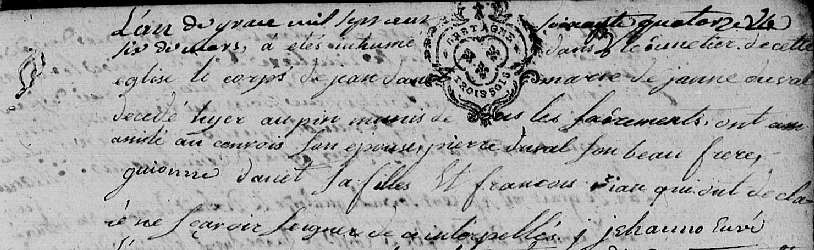 L'an de grace mil sept cent soixante quatorze le
six de mars, a etes inhumé dans le cimetier de cette
eglise le corps de jean danet marie de janne duval
decedé hyer au pin munis de tous les sacrements, ont
assisté au convois son epouse, pierre duval son beau frere,
guionne danet sa filles Et francois qui ont decla
ré ne scavoir signer de ce interpelles, j jehanno curé
BRETAGNE
TROIS SOLS